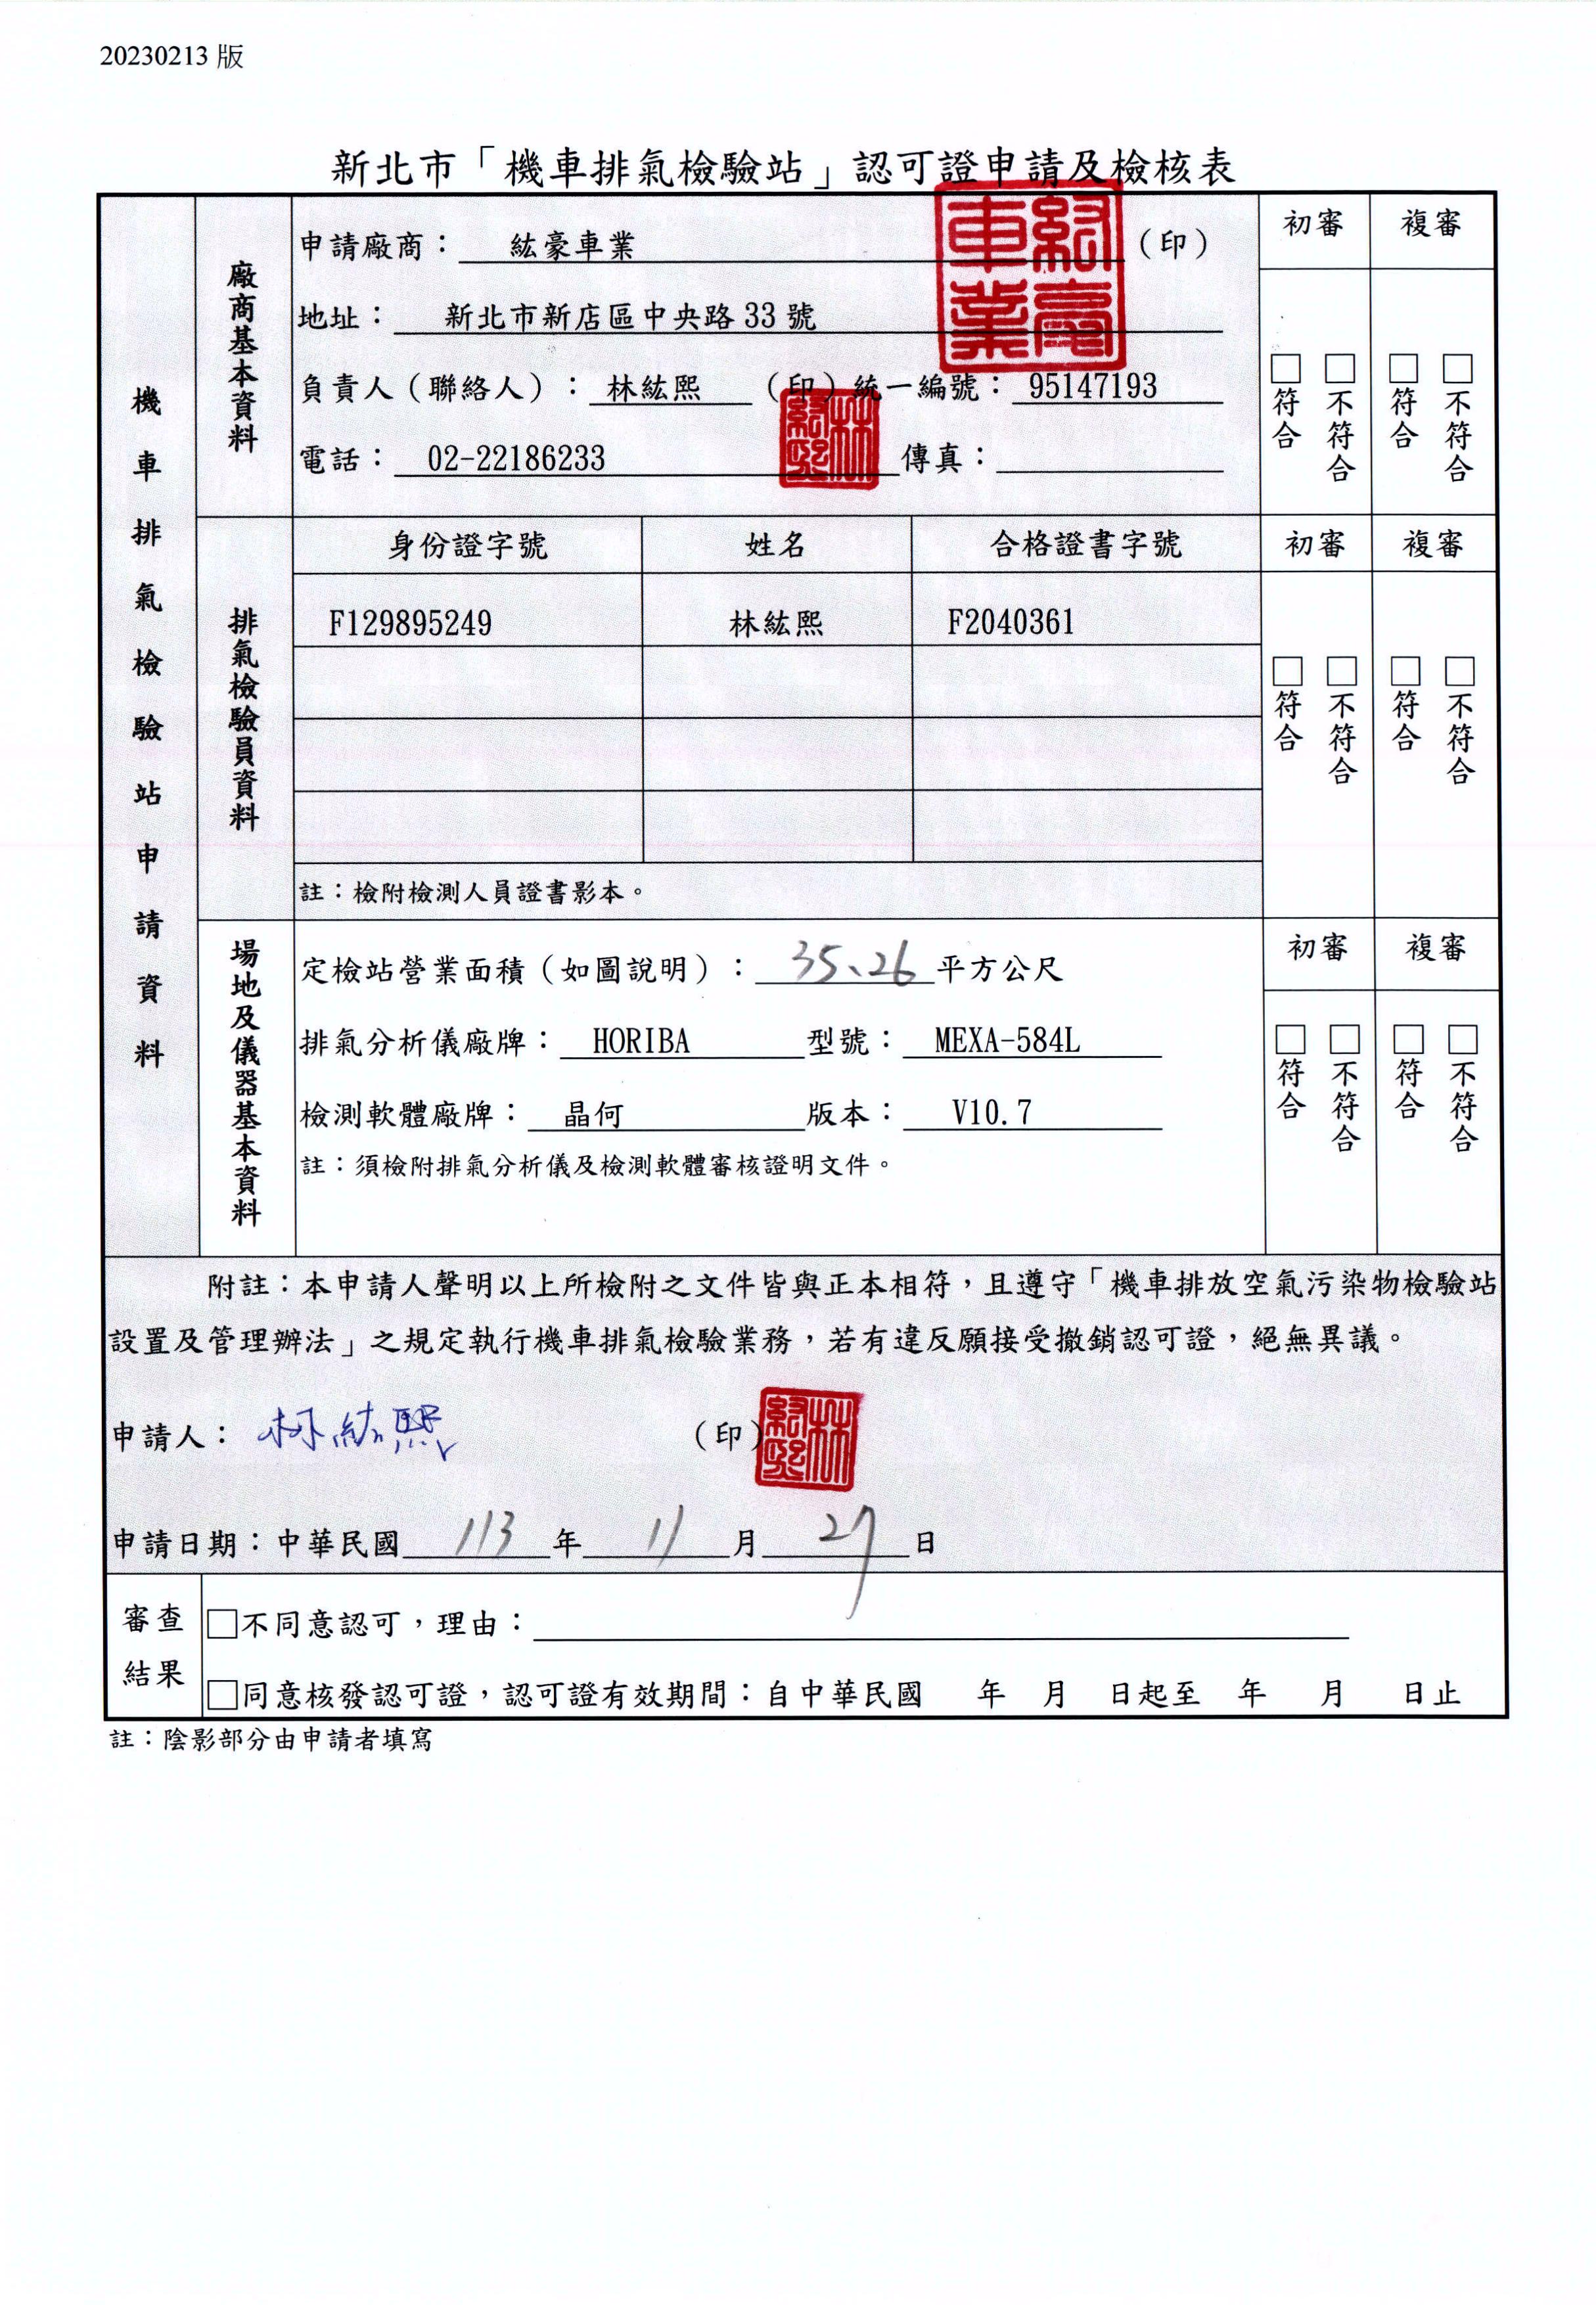 20230213 版
新北市「機車排氣檢驗站」認可證申請及檢核表
機車排氣檢驗站申請資料
廠商基本資料
申請廠商： 紘豪車業 （印）
地址： 新北市新店區中央路 33 號
負責人（聯絡人）： 林紘熙 （印）統一編號： 95147193
電話： 02-22186233 傳真：
紘豪車業
林紘熙
初審 複審
□符合 □不符合 □符合 □不符合
排氣檢驗員資料
身份證字號 姓名 合格證書字號
F129895249 林紘熙 F2040361
註：檢附檢測人員證書影本。
初審 複審
□符合 □不符合 □符合 □不符合
場地及儀器基本資料
定檢站營業面積（如圖說明）： 35、26 平方公尺
排氣分析儀廠牌： HORIBA 型號： MEXA-584L
檢測軟體廠牌： 晶何 版本： V10.7
註：須檢附排氣分析儀及檢測軟體審核證明文件。
初審 複審
□符合 □不符合 □符合 □不符合
附註：本申請人聲明以上所檢附之文件皆與正本相符，且遵守「機車排放空氣污染物檢驗站
設置及管理辦法」之規定執行機車排氣檢驗業務，若有違反願接受撤銷認可證，絕無異議。
申請人： 林紘熙 （印）
林紘熙
申請日期：中華民國 113 年 11 月 27 日
審查結果
□不同意認可，理由：
□同意核發認可證，認可證有效期間：自中華民國 年 月 日起至 年 月 日止
註：陰影部分由申請者填寫